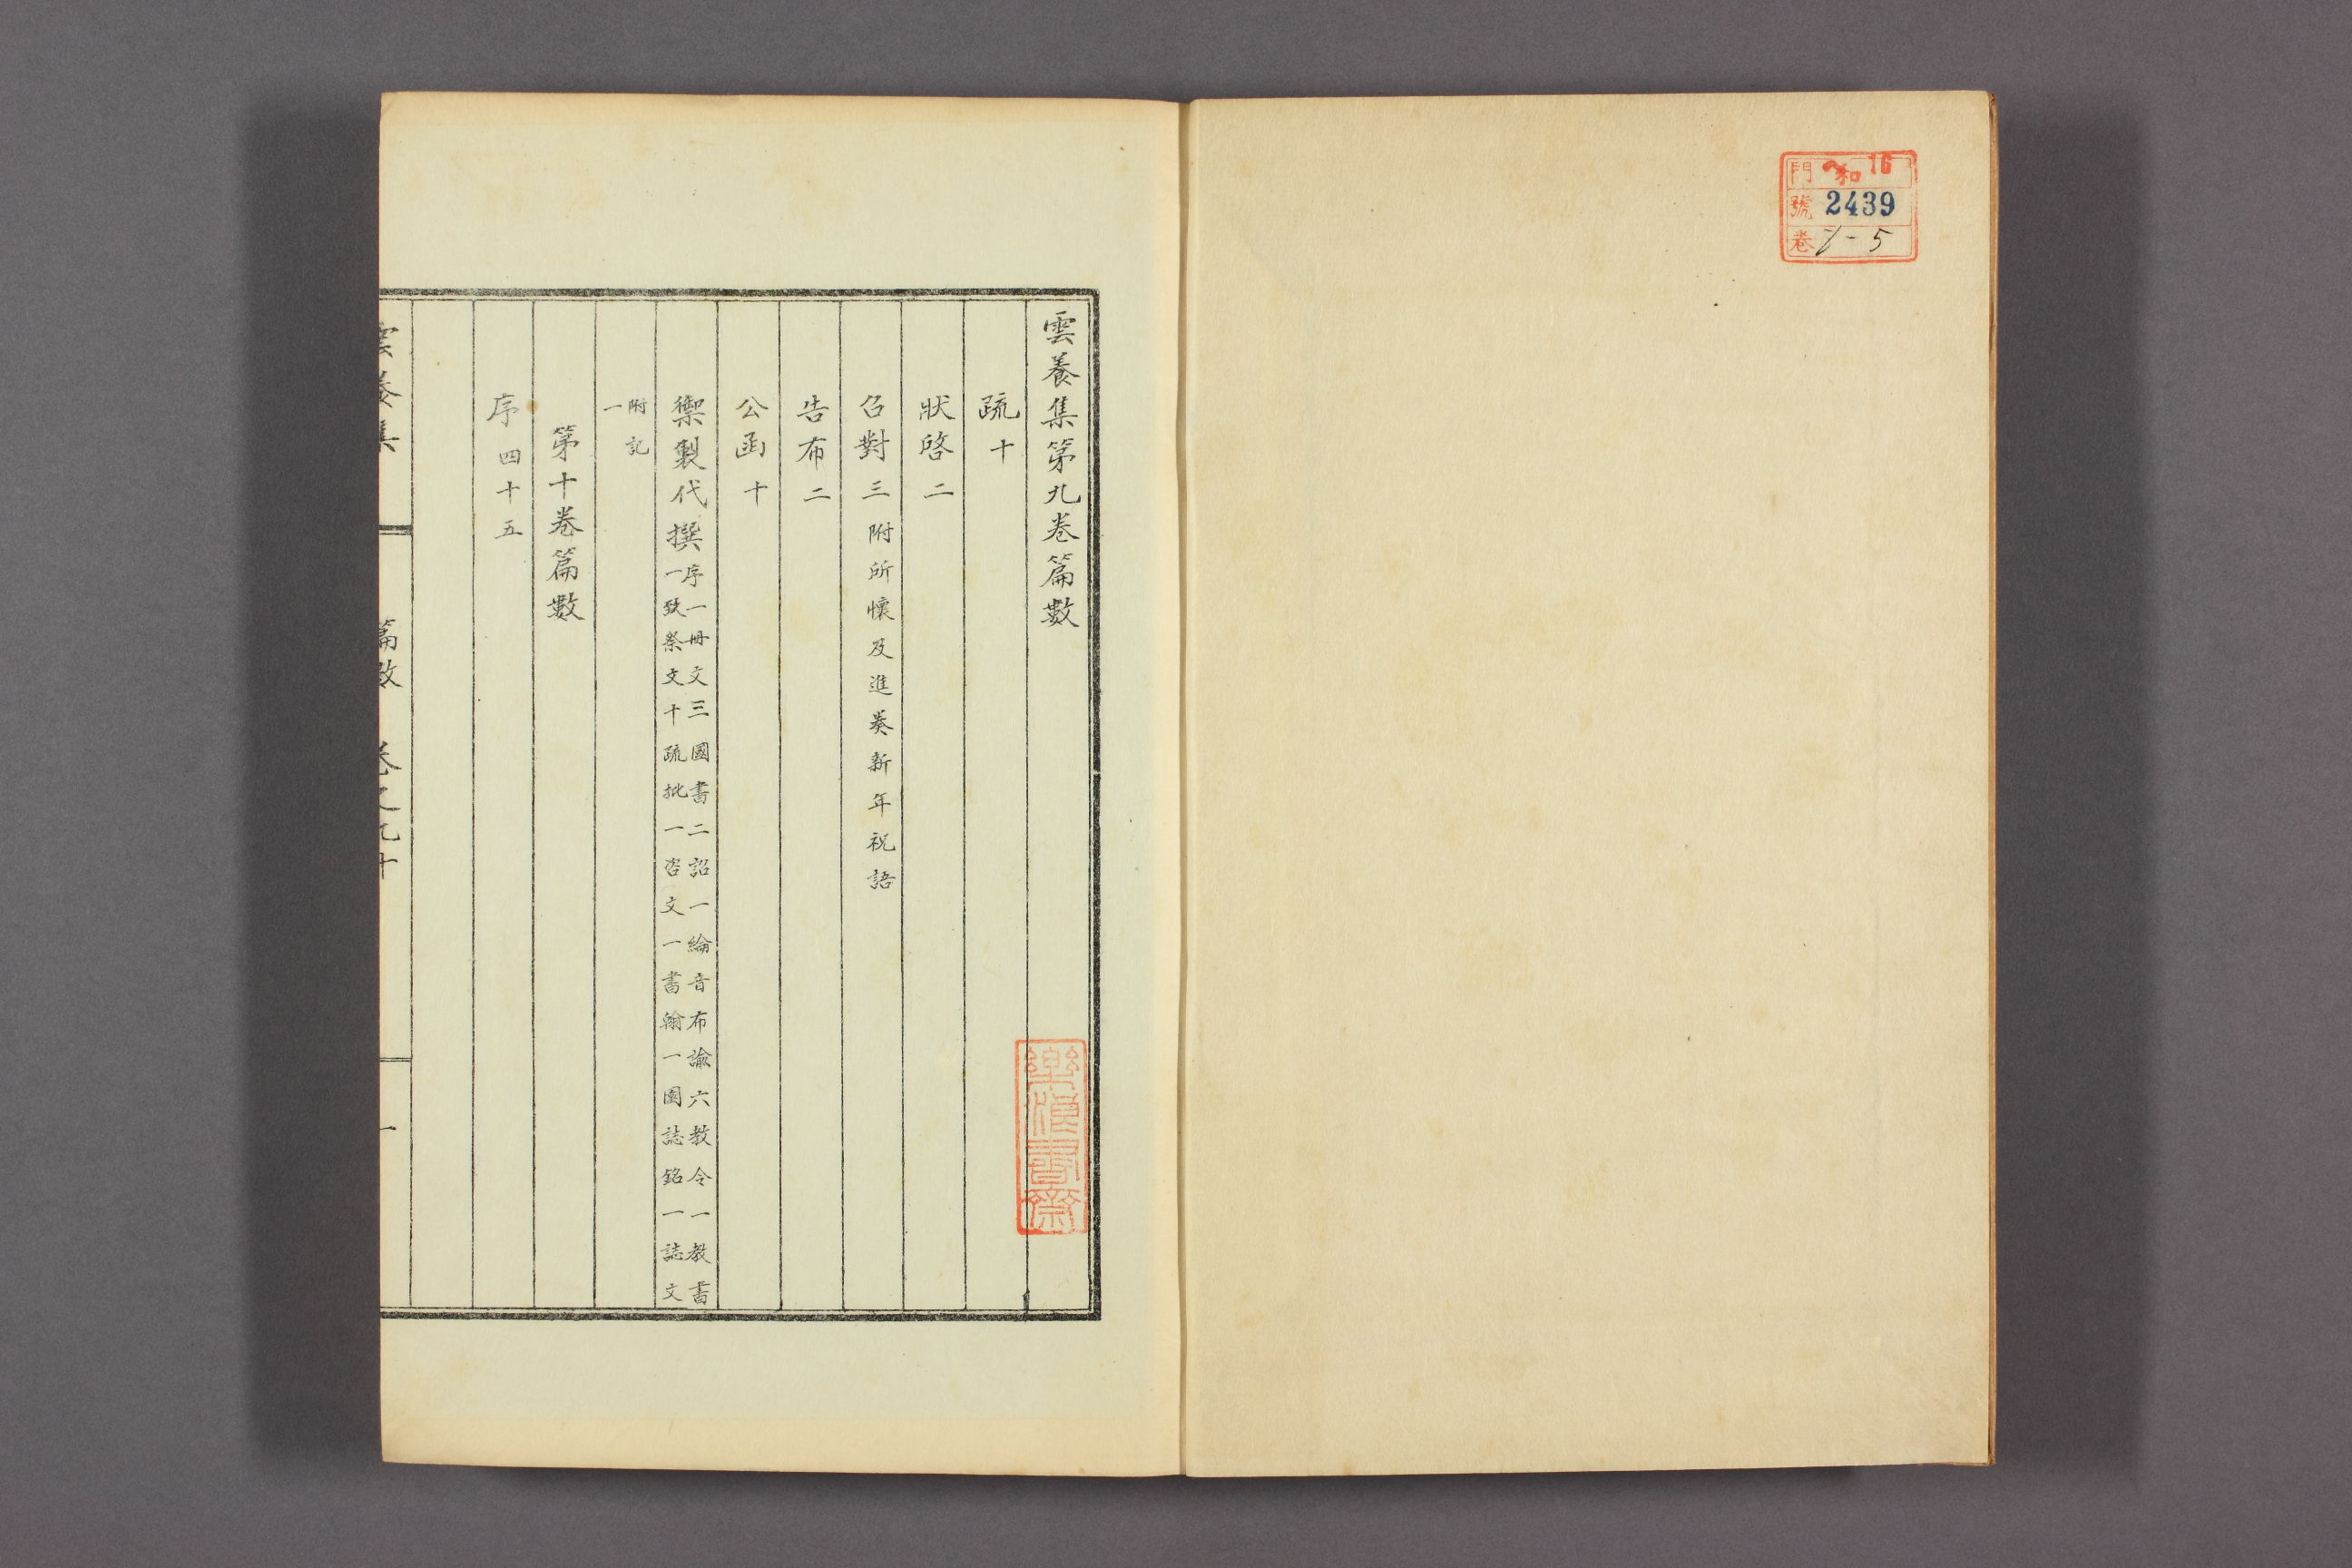 門 ヘ和 16
號 2439
卷 5
雲養集第九卷篇數
疏十
狀啓二
召對三附所懷及進奏新年祝語
告布二
公函十
御製代撰序一冊文三國書二詔一綸音布諭六教令一教書
一致祭文十疏批一咨文一書翰一園誌銘一誌文
附記
一
第十卷篇數
序四十五
雲養集 篇數 卷之九十 一